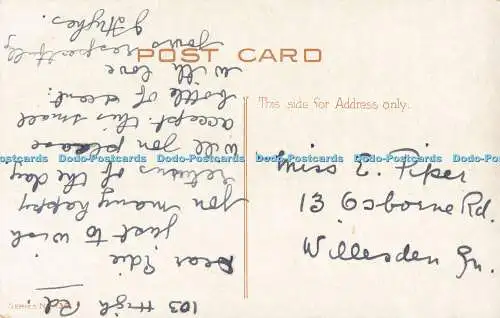 POST CARD
This side for Address only.
103 High
Rd.
Dear Edie
just to wish
you many happy
returns of the day
will you please
accept this small
bottle of scent.
with love
yours respectfully
J Hughes.
Miss E. Piper
13 Osborne Rd.
Willesden Gn.
Dodo-Postcards Dodo-Postcards Dodo-Postcards Dodo-Postcards Dodo-Postcards